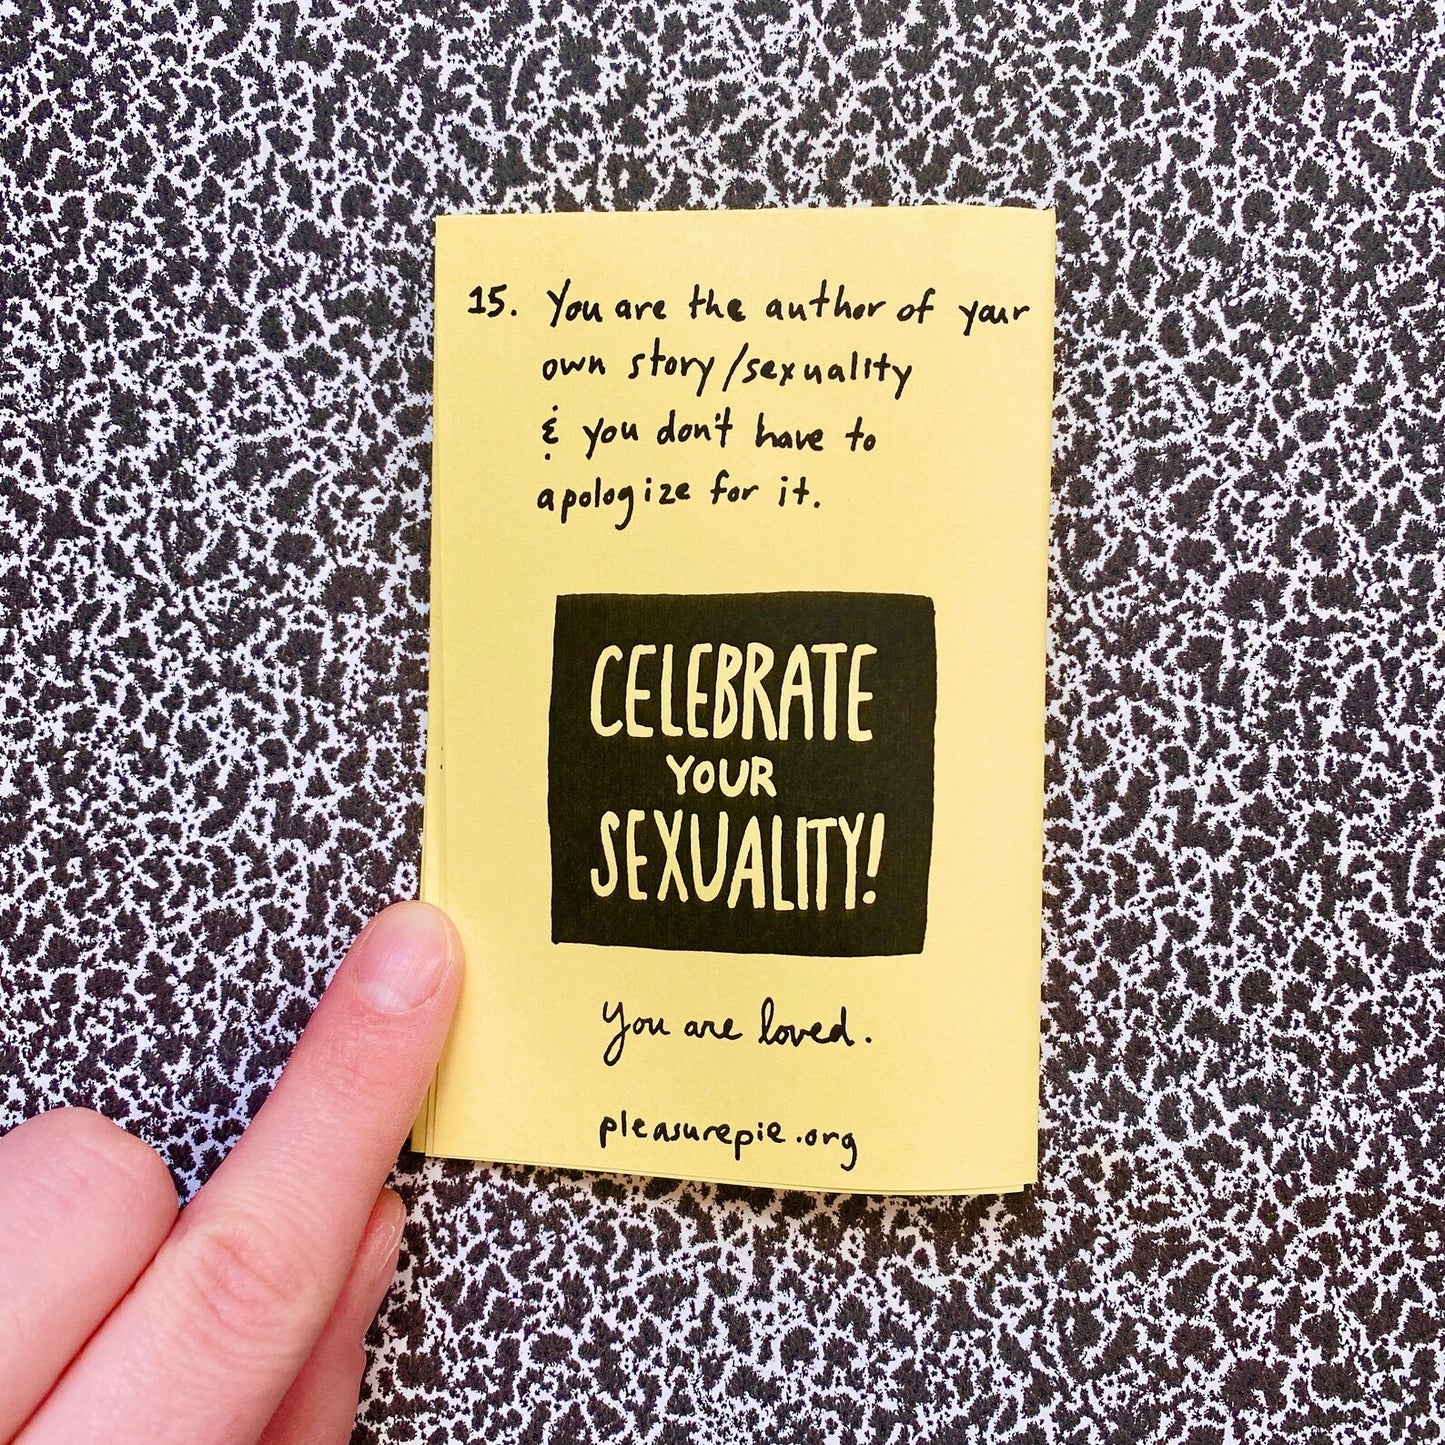 15. You are the author of your
own story/sexuality
& you don't have to
apologize for it.
CELEBRATE
YOUR
SEXUALITY!
You are loved.
pleasurepie.org